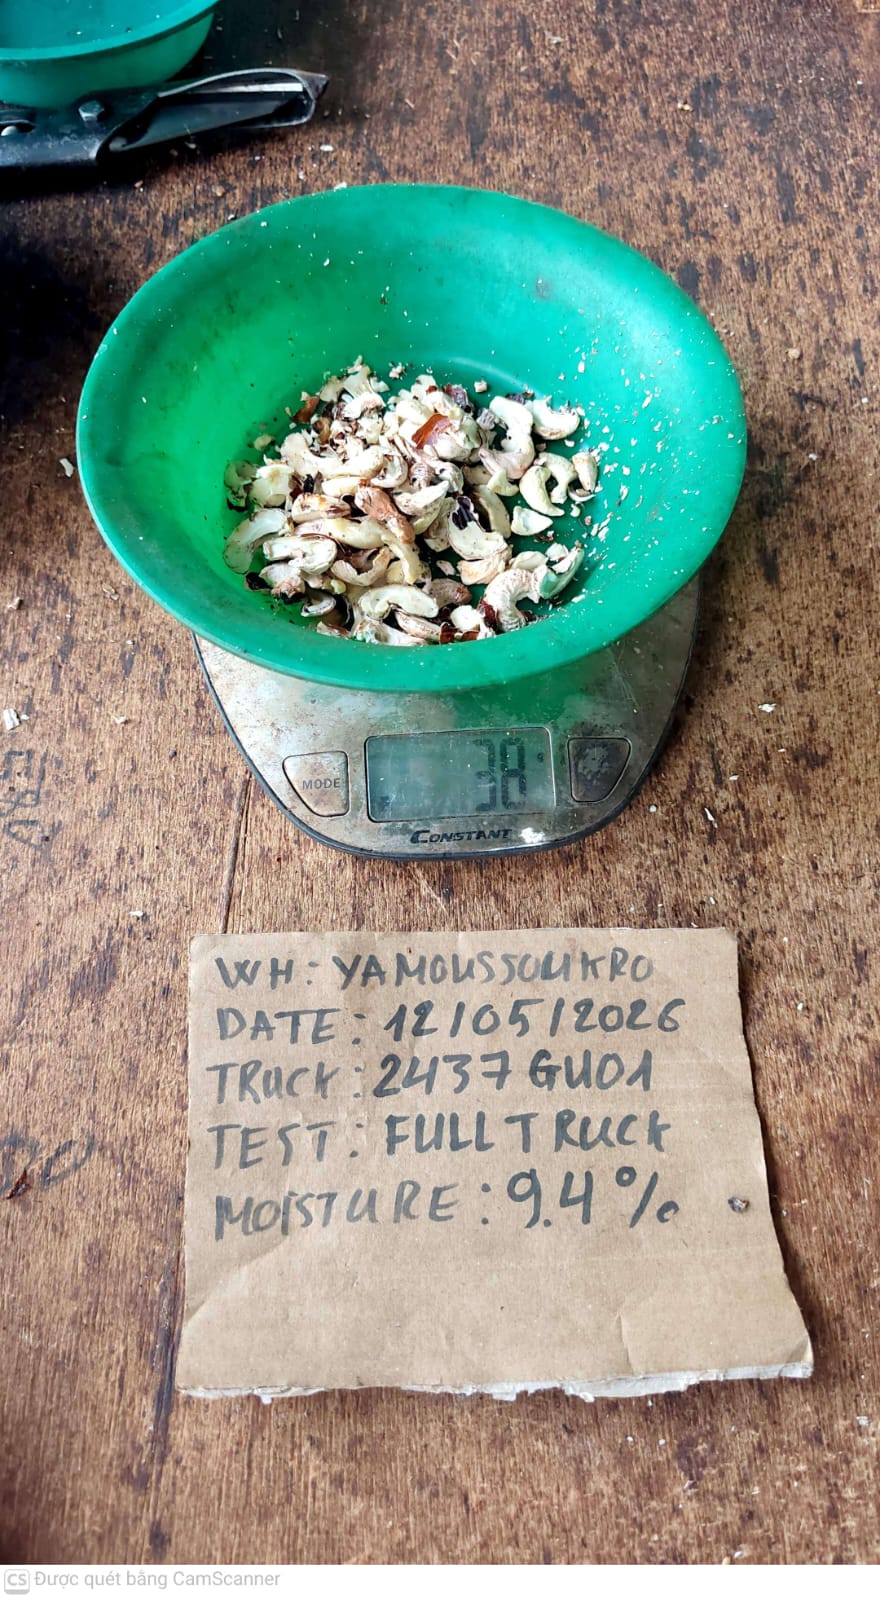 MODE
38
CONSTANT
WH: YAMOUSSOUKRO
DATE: 12/05/2026
TRUCK: 2437GU01
TEST: FULL TRUCK
MOISTURE: 9.4%
CS Được quét bằng CamScanner